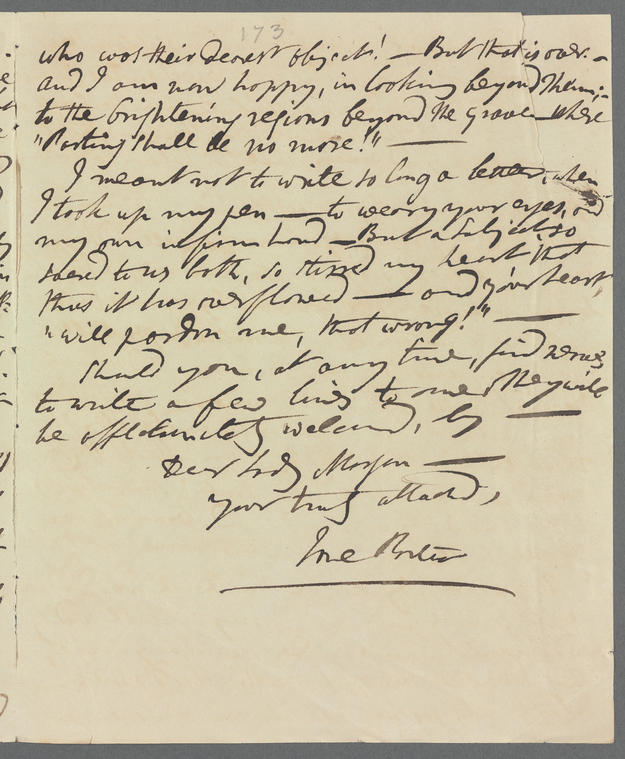 173
who was their dearest object! — But that is over. —
and I am now happy, in looking beyond them; —
to the brightening regions beyond the grave — where
"Parting shall be no more!" —
I meant not to write so long a letter, when
I took up my pen — to weary your eyes, and
my own infirm hand — But a subject, so
sacred to us both, so stirred my heart that
thus it has overflowed — and your heart
"will pardon me, that wrong!" —
Should you, at any time, find nerves
to write a few lines to me, they will
be affectionately welcomed, by —
Dear Lady Morgan —
your truly attached,
Jane Porter